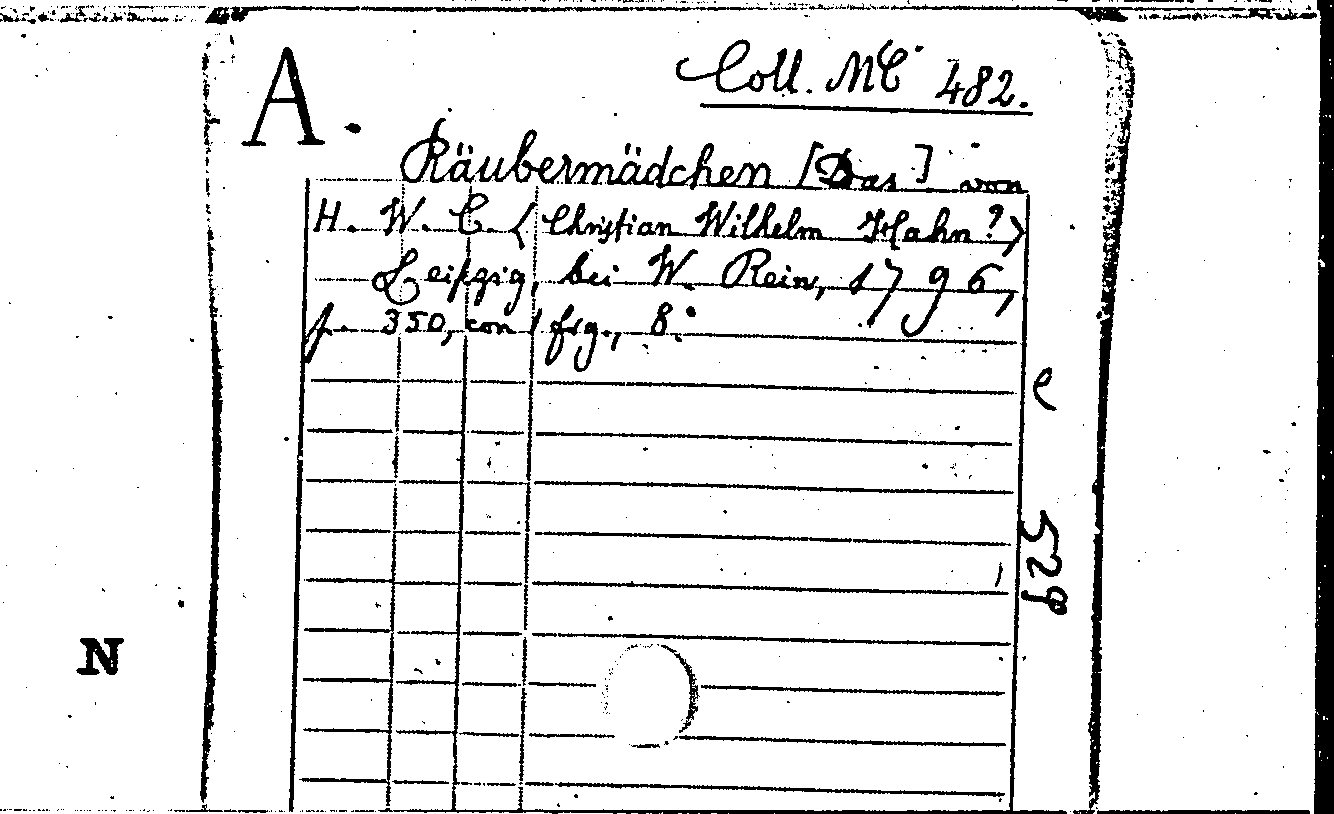 A.
Coll. MC 482.
Räubermädchen [Das] von
H. W. C. < Christian Wilhelm Hahn? >
Leipzig, bei W. Rein, 1796,
p. 350, con 1 frg., 8°.
e
529
N